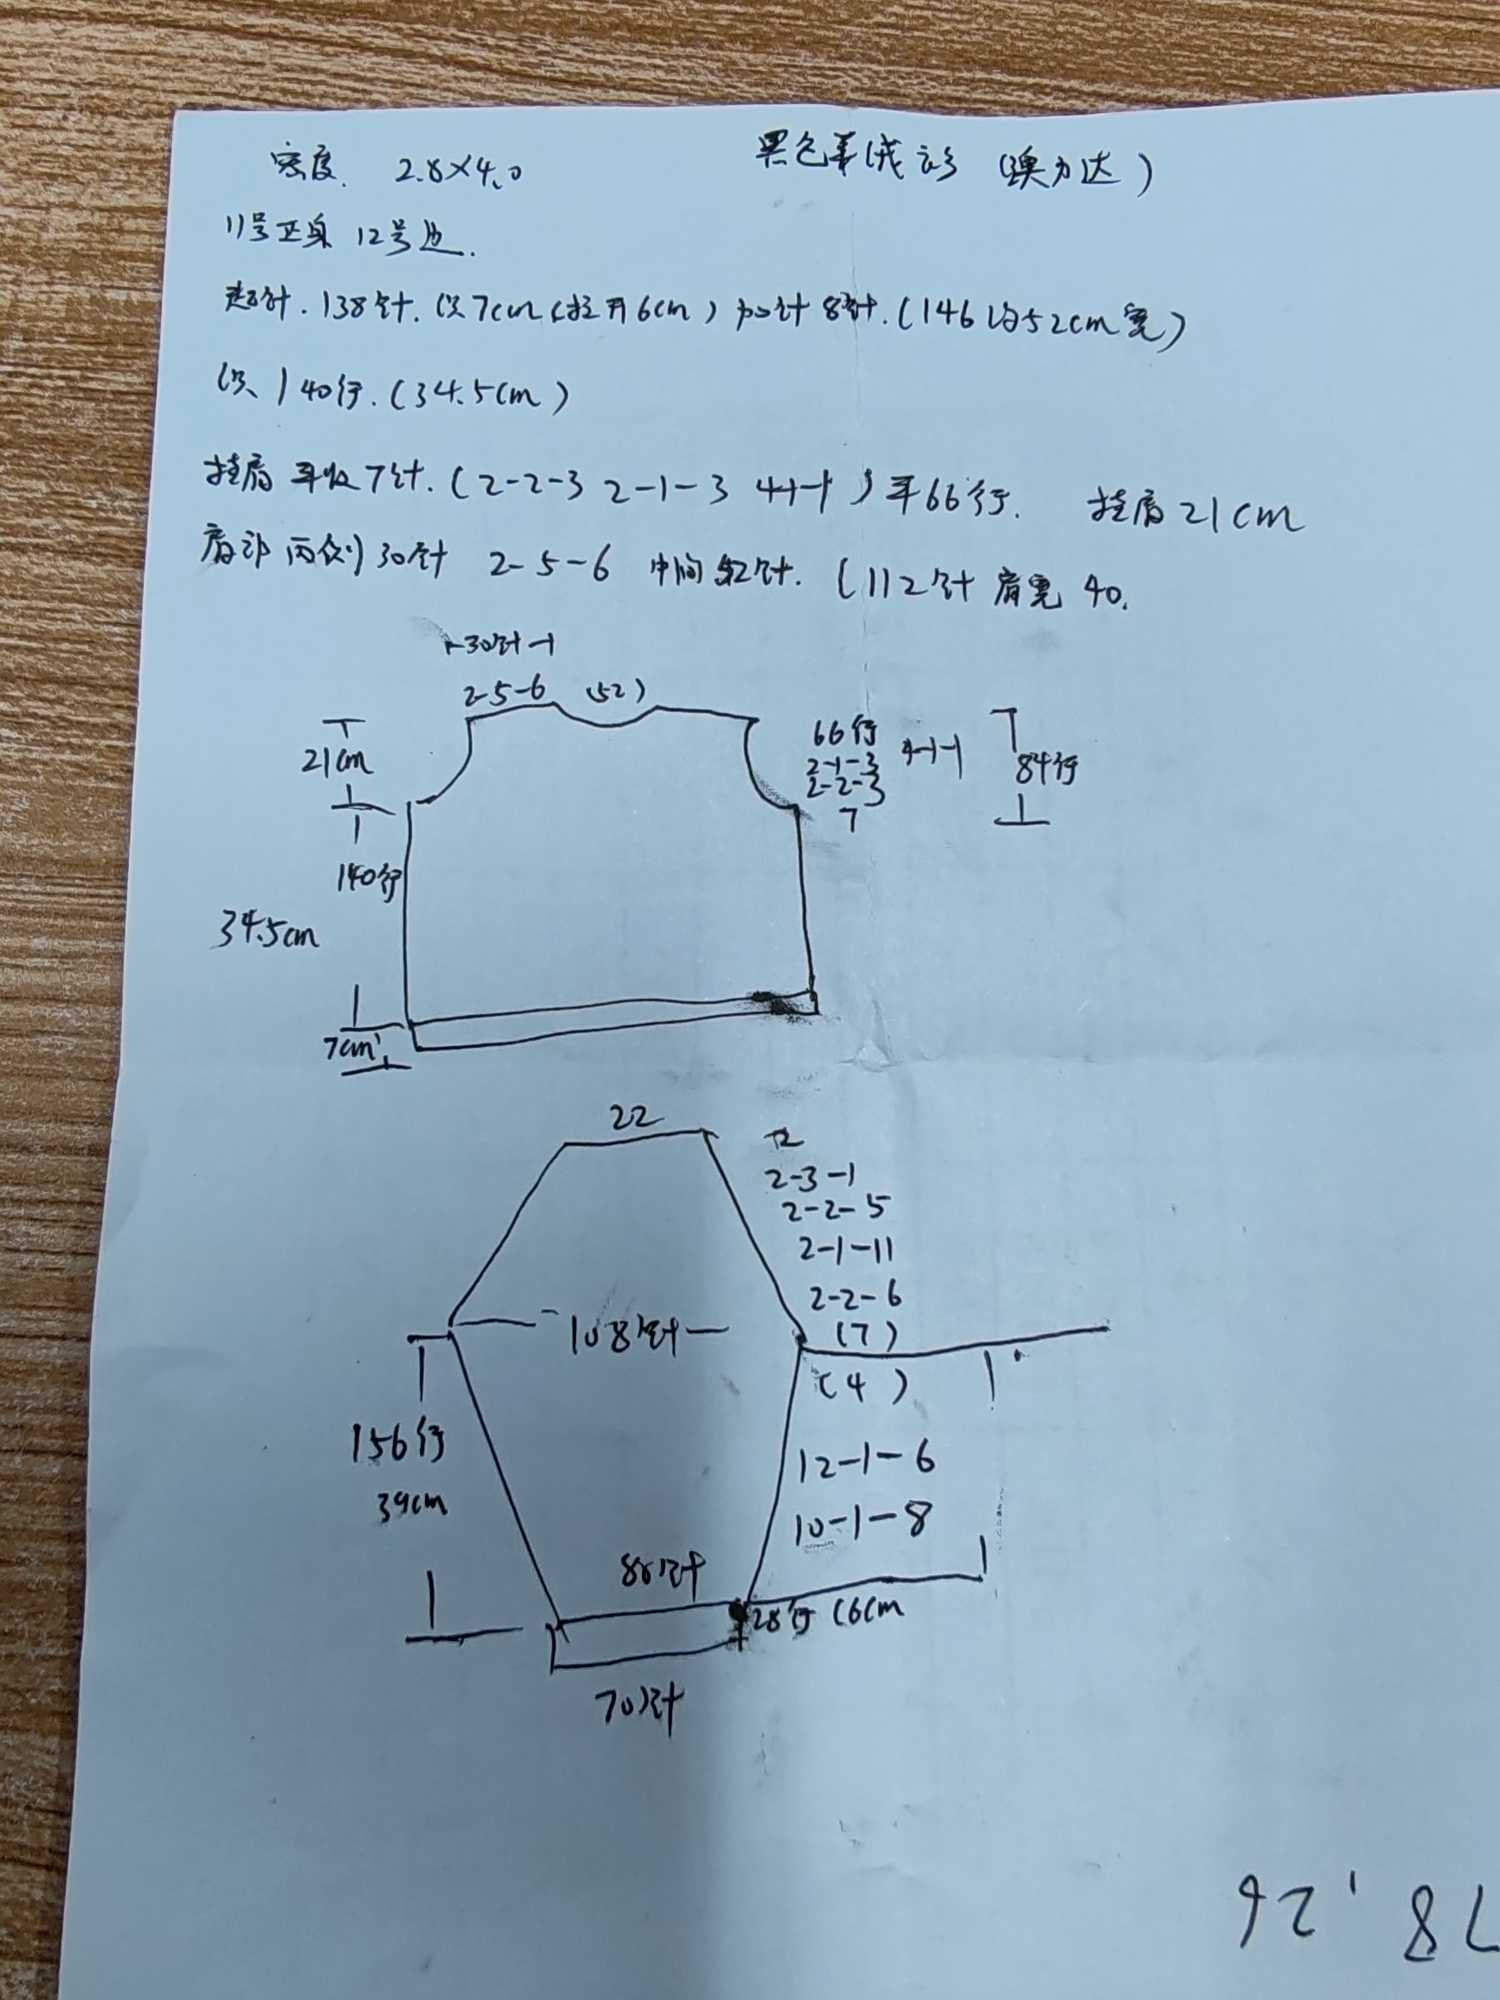 密度. 2.8×4.0
黑色羊绒衫 (澳力达)
11号正身 12号边.
起针. 138针. 织7cm (拉开6cm) 加针8针. (146约52cm宽)
织 140行. (34.5cm)
挂肩 平收7针. (2-2-3 2-1-3 4-1-1) 平66行. 挂肩21cm
肩部 两侧30针 2-5-6 中间52针. (112针 肩宽 40.
30针
2-5-6 (52)
21cm
66行
2-1-3 4-1-1
2-2-3
7
84行
140行
34.5cm
7cm
22
2-3-1
2-2-5
2-1-11
2-2-6
(7)
108针
(4)
156行
39cm
12-1-6
10-1-8
80针
28行 (6cm
70针
78.26